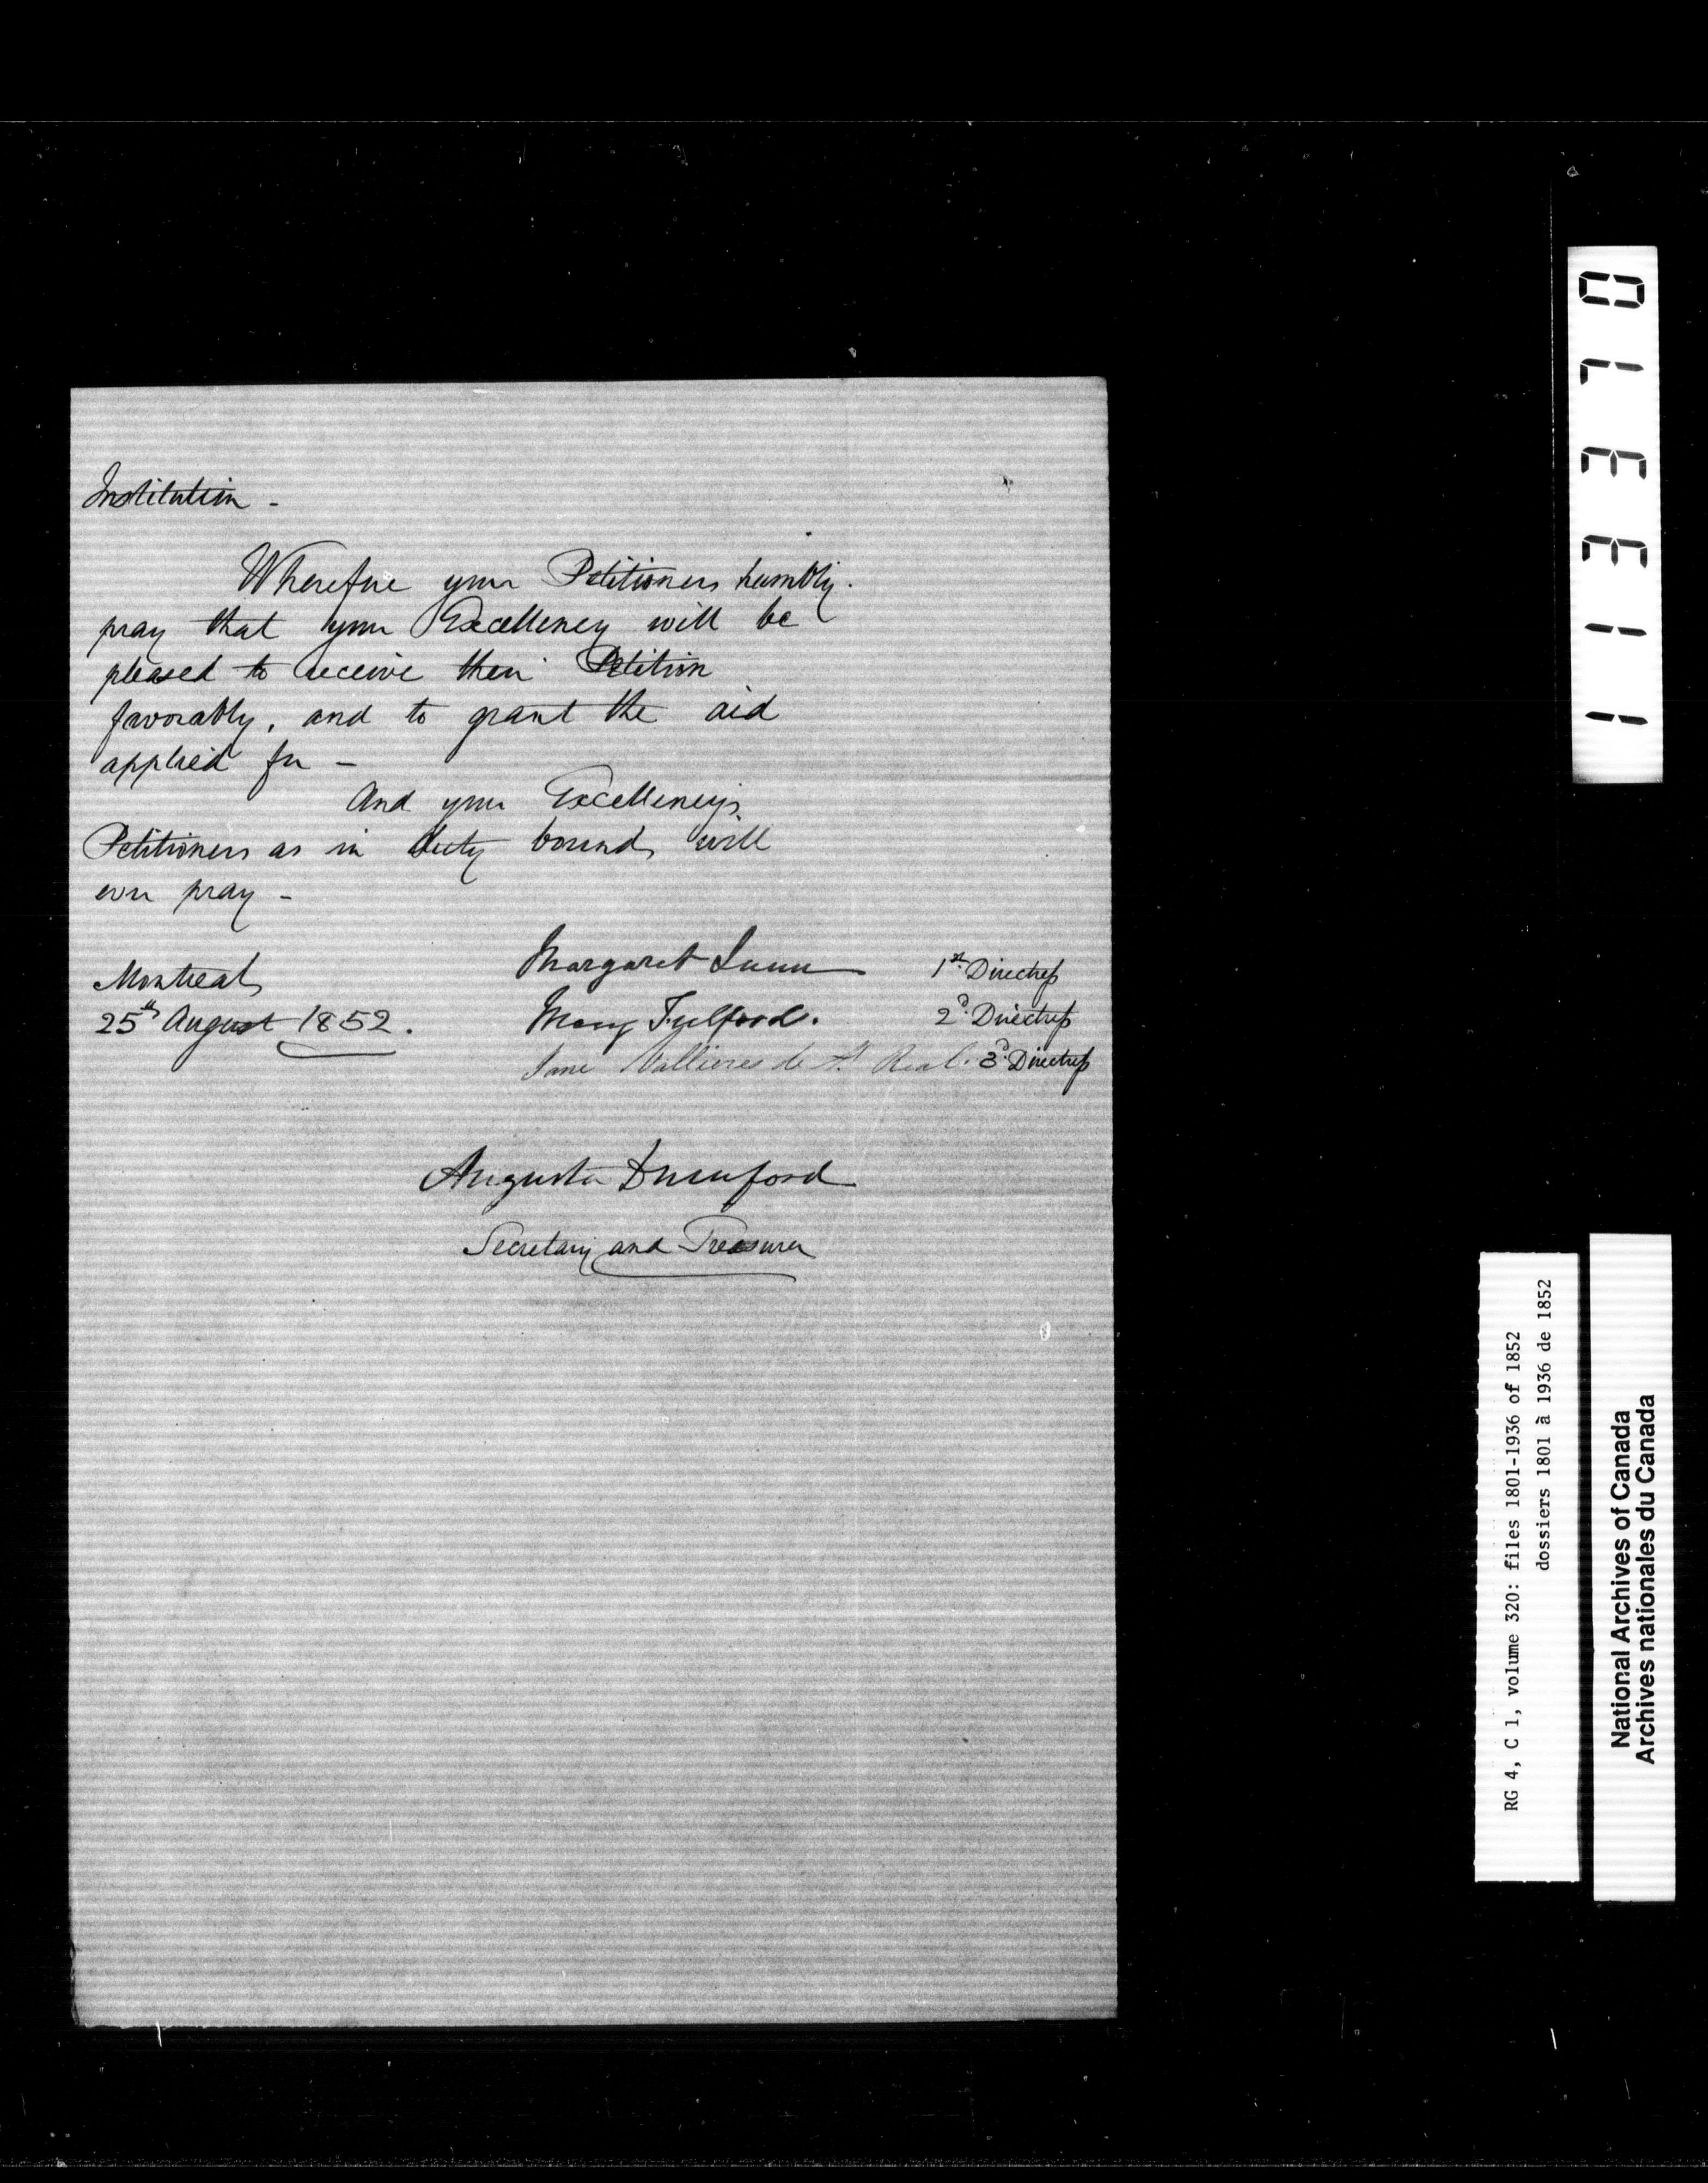 Institution -
Wherefore your Petitioners humbly
pray that your Excellency will be
pleased to receive their Petition
favorably, and to grant the aid
applied for -
And your Excellency's
Petitioners as in duty bound, will
ever pray -
Montreal,
25th August 1852.
Margaret Lunn 1st Directress
Mary Fulford. 2d Directress
Jane Vallieres de St. Real. 3d Directress
Augusta
Secretary and Treasurer
0 7 3 3 1 1
RG 4, C 1, volume 320: files 1801-1936 of 1852
dossiers 1801 à 1936 de 1852
National Archives of Canada
Archives nationales du Canada